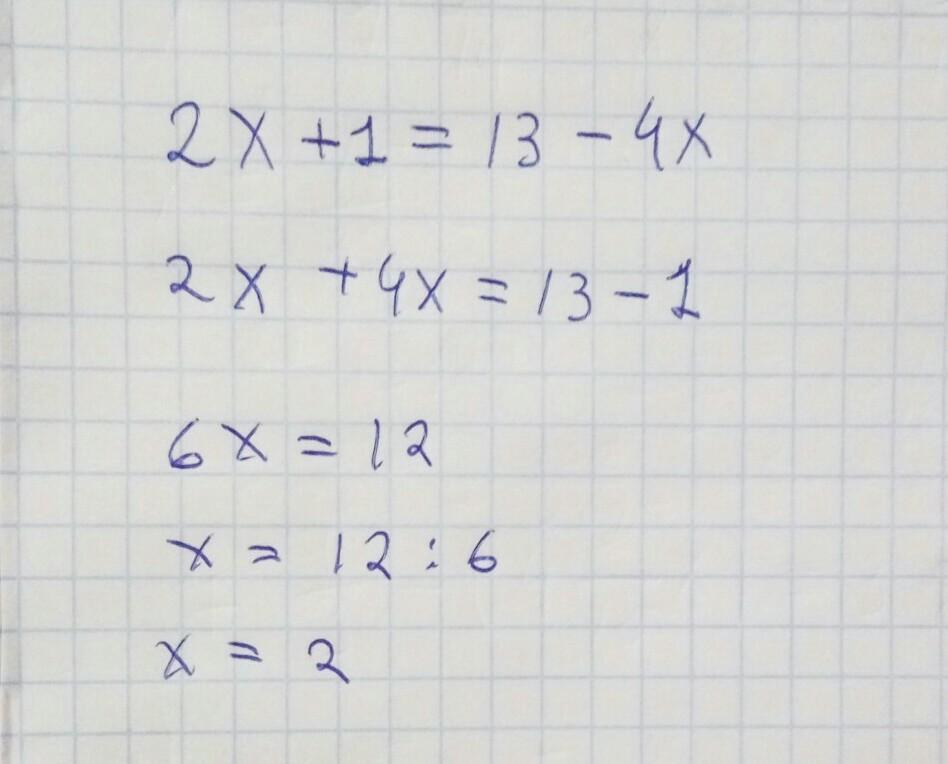 2x + 1 = 13 - 4x
2x + 4x = 13 - 1
6x = 12
x = 12 : 6
x = 2